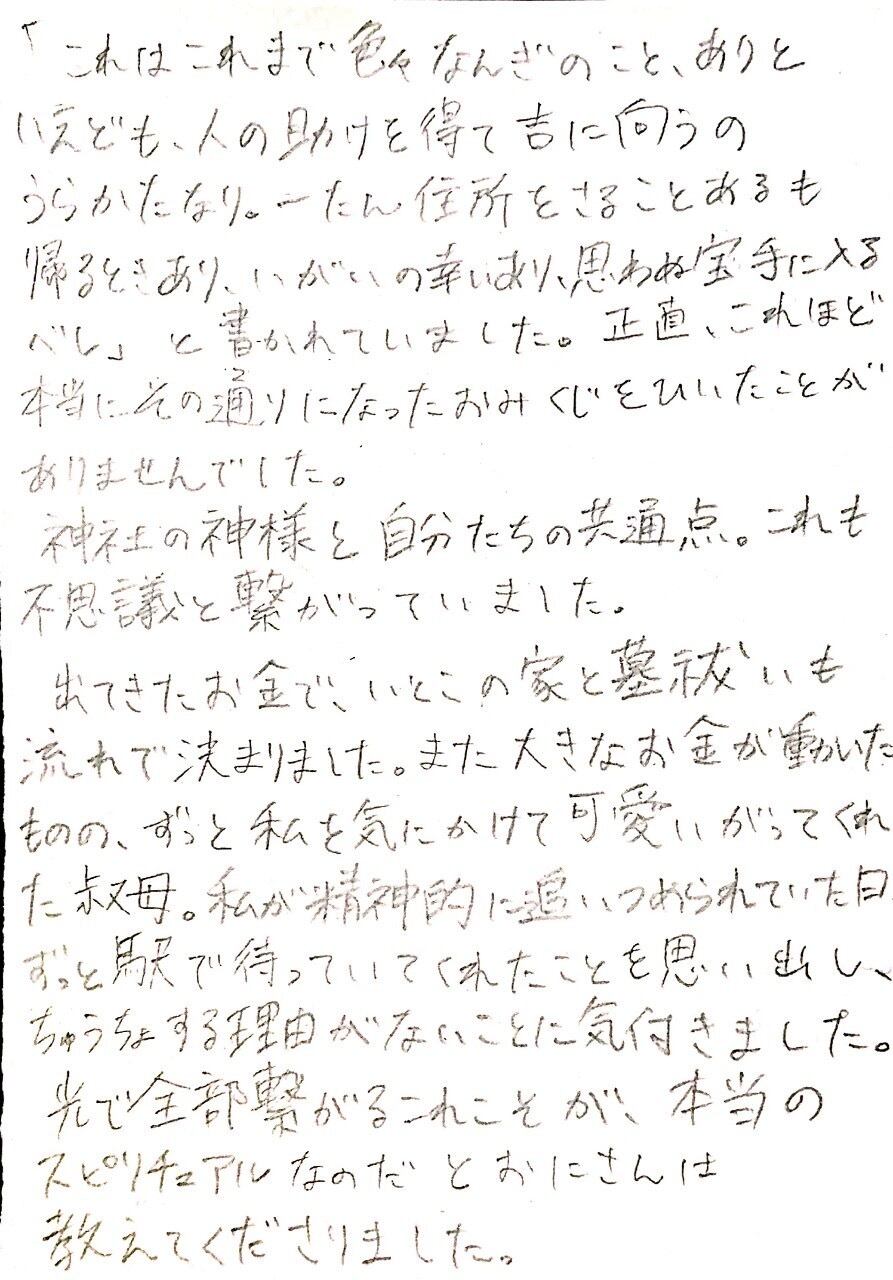 「これはこれまで色々なんぎのこと、ありと
いえども、人の助けを得て吉に向うの
うらかたなり。一たん住所をさることあるも
帰るときあり、いがいの幸いあり、思わぬ宝手に入る
べし」と書かれていました。正直、これほど
本当にその通りになったおみくじをひいたことが
ありませんでした。
神社の神様と自分たちの共通点。これも
不思議と繋がっていました。
出てきたお金で、いとこの家と墓祓いも
流れで決まりました。また大きなお金が動いた
ものの、ずっと私を気にかけて可愛いがってくれ
た叔母。私が精神的に追いつめられていた日
ずっと駅で待っていてくれたことを思い出し、
ちゅうちょする理由がないことに気付きました。
光で全部繋がるこれこそが、本当の
スピリチュアルなのだとおにさんは
教えてくださりました。